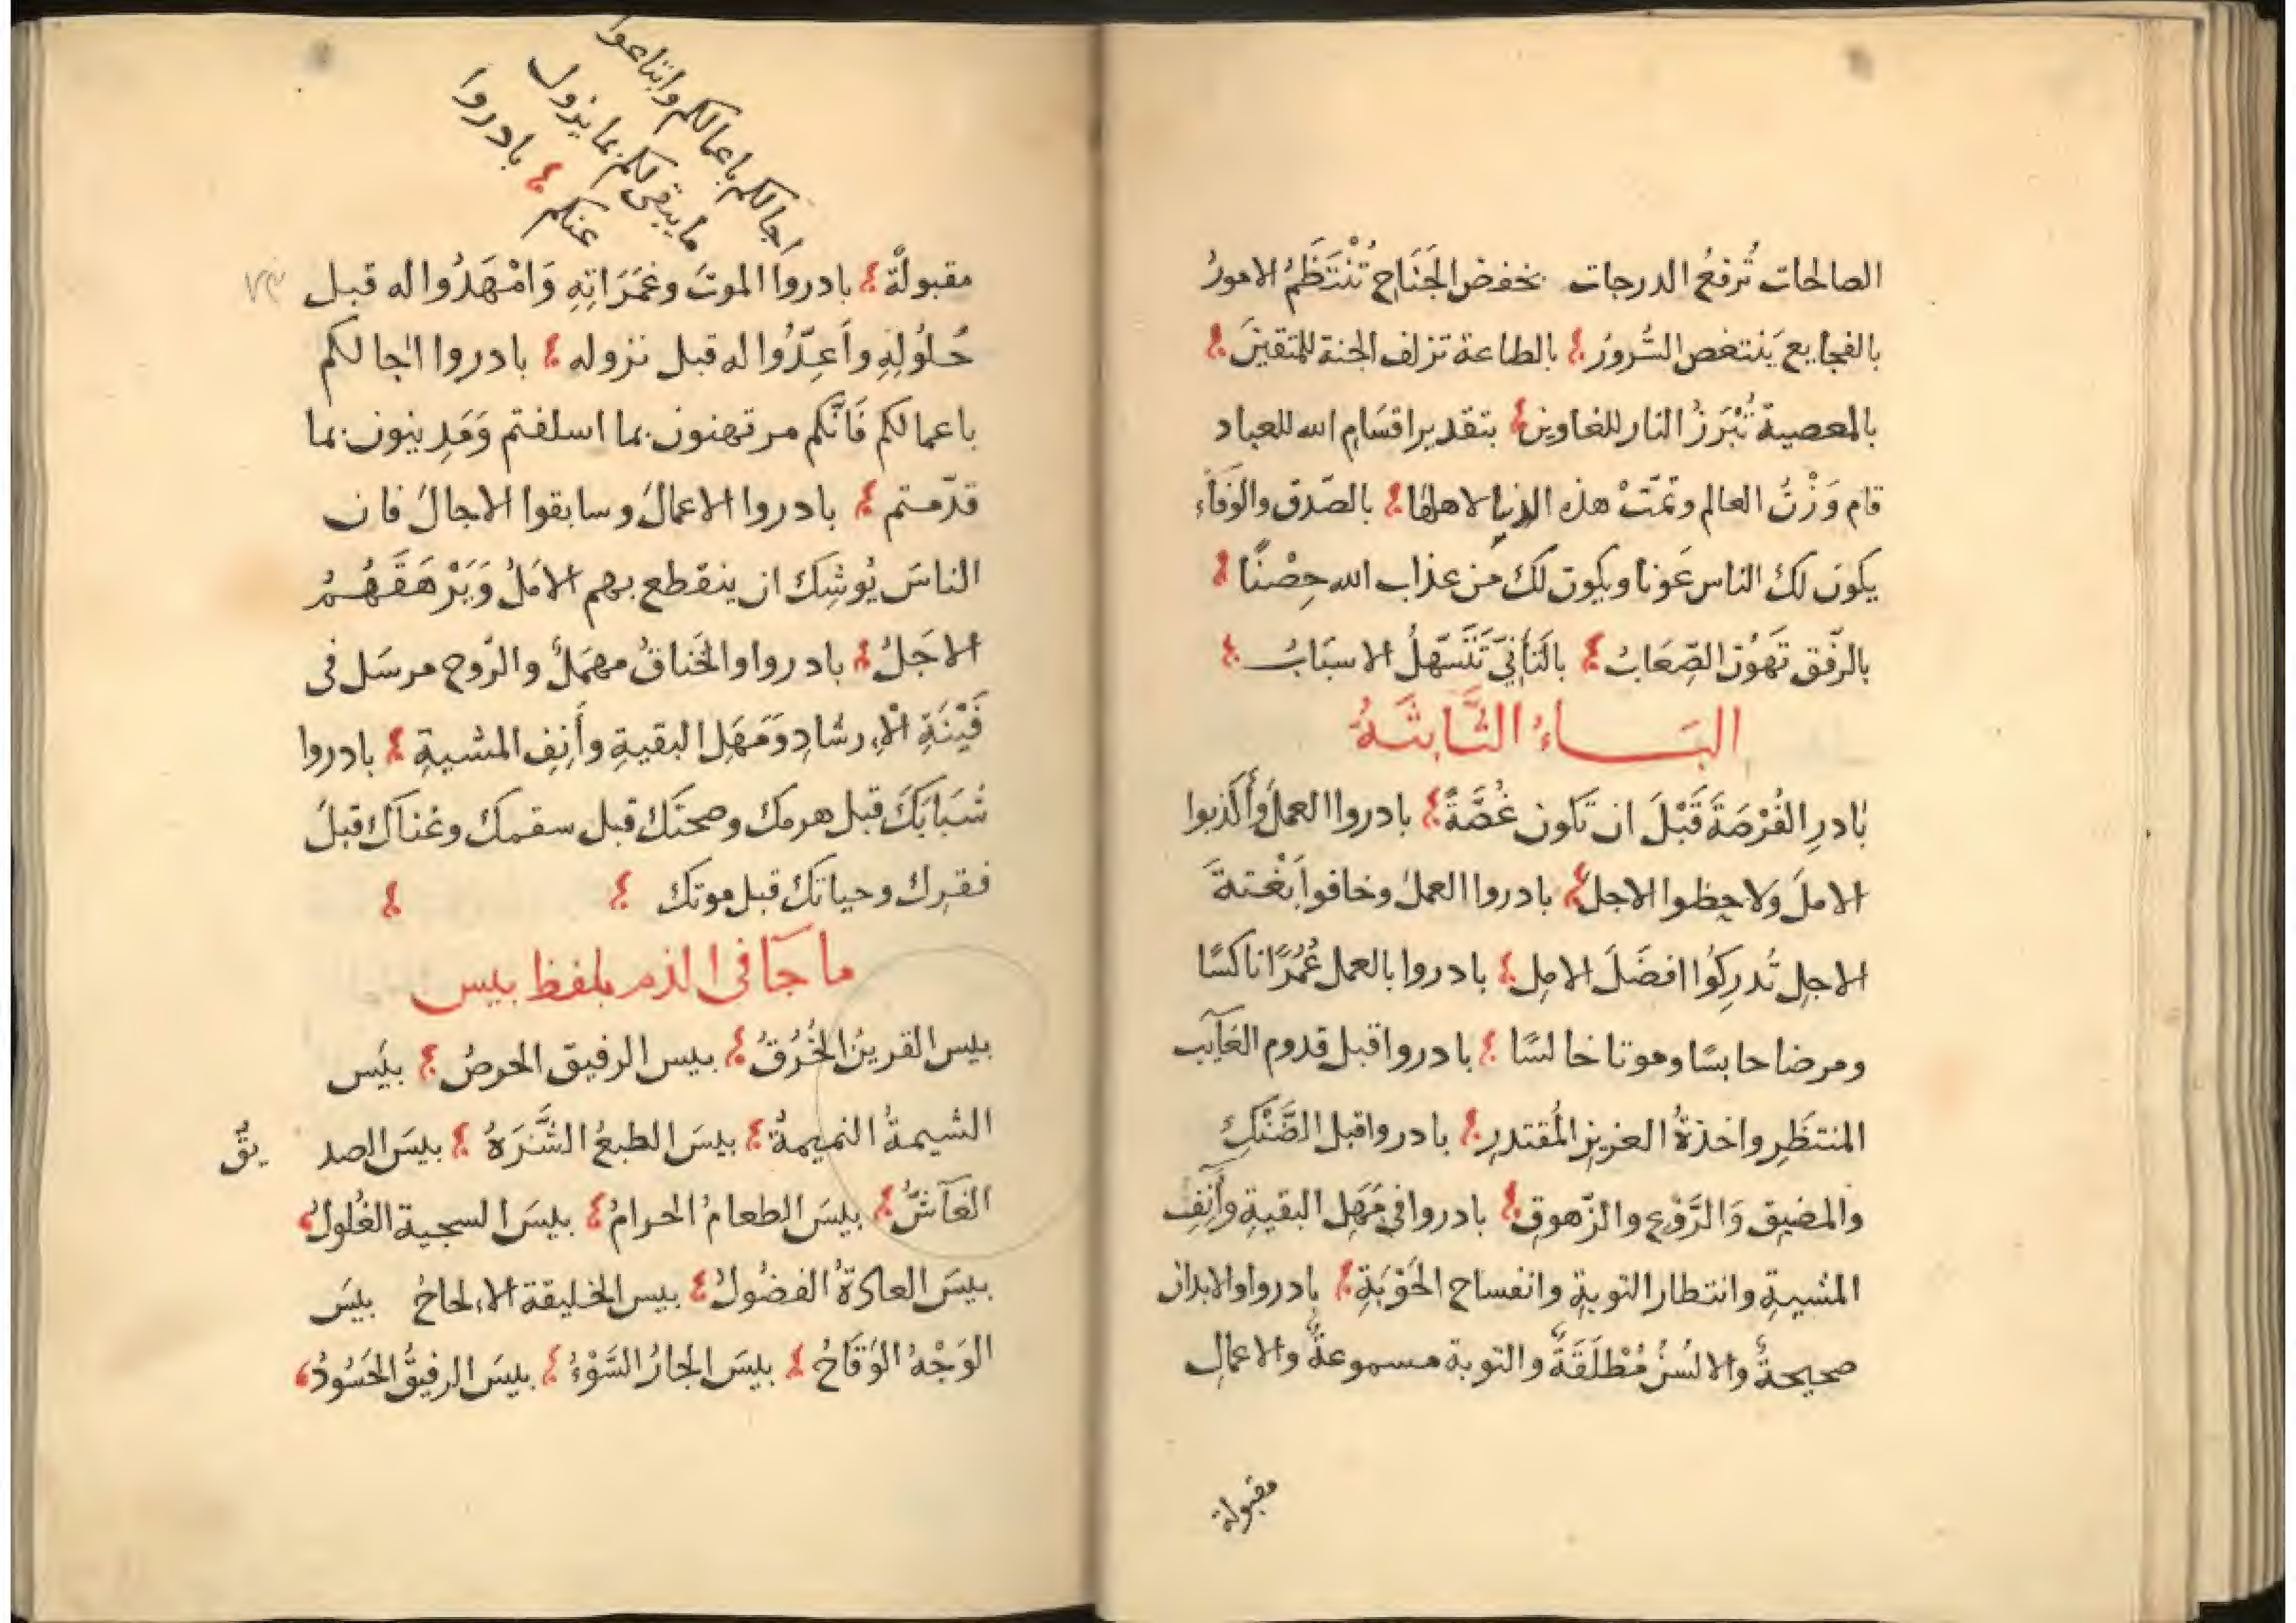 الصالحات تُرفعُ الدرجات بخفض الجَنَاحِ تُنْتَظَمُ الامورُ
بالفجايع يَنتغص السُّرورُ بالطاعة تزلف الجنة للمتقينَ
بالمعصية تُبْرَزُ النار للغاوين بتقدير اقسَامِ الله للعباد
قام وَزْنُ العالم وتمّتْ هذه الدنيا لاهلها بالصّدق والوَفَاء
يكون لك الناس عَونا ويكون لك من عذاب الله حِصْنًا
بالرّفق تَهَوْن الصِّعَابُ بالتَأنِيّ تَتَسَهّلُ الاسبَابُ
البَاءُ الثَّابِتَةُ
بَادرِ الفُرْصَةَ قَبْلَ ان تَكون غُصَّةً بادروا العملَ وأكذبوا
الاملَ ولاحظوا الاجل بادروا العملَ وخافوا بَغْتةَ
الاجلِ تُدرِكُوا افضَلَ الامِل بادروا بالعمل عُمُرًا ناكسًا
ومرضا حابسًا وموتا خالسًا بادروا قبل قدوم الغَآيب
المنتظَرِ واخذةُ العزيزِ المُقتدرِ بادروا قبل الضَّنْكِ
والمضيق وَالرَّوْعِ والزّهوقِ بادروا في مَهَلِ البقيةِ وأَنِفِ
المشيةِ وانتطار التوبةِ وانفساح الحَوْبَةِ بادروا والابدان
صحيحةٌ والالسُنُ مُطْلَقَةٌ والتوبة مسموعةٌ والاعمال
مقبولة
اجالكم باعمالكم وابتاعوا
ما يبقى لكم بما يزول
عنكم بادروا
مقبولةٌ بادروا الموتَ وغَمَرَاتِهِ وَامْهَدُوا له قبل
حُلُولِهِ وأَعِدّوُا له قبل نزوله بادروا اجالكم
باعمالكم فَانّكم مرتهنون بما اسلفتم وَمَدِينون بما
قدّمتم بادروا الاعمالَ وسابقوا الاجالَ فان
الناسَ يُوشِك ان ينقطع بهم الامَلُ وَيَرْهَقَهُمُ
الاجَلُ بادروا والخَناقُ مهمَلٌ والرّوح مرسَل في
فَيْنَةِ الْاِرشَادِ وَمَهَلِ البقيةِ وأَنِفِ المشيةِ بادروا
شَبَابَكَ قبل هرمك وصحتَك قبل سقمك وغناك قبلَ
فقرِك وحياتك قبل موتك
ما جَآ في الذم بلفظ بيس
بيس القرينُ الخُرُقُ بيس الرفيق الحرصُ بيَس
الشيمةُ النميمةُ بيسَ الطبعُ الشَّرَهُ بيسَ الصديقُ
الغَآشُّ بيسَ الطعامُ الحرامُ بيسَ السجية الغُلولُ
بيسَ العادةُ الفضُولُ بيس الخليقة الاِلحاحُ بيَس
الوَجْهُ الوَقَاحُ بيسَ الجارُ السَّوْءُ بيسَ الرفيقُ الحَسُودُ